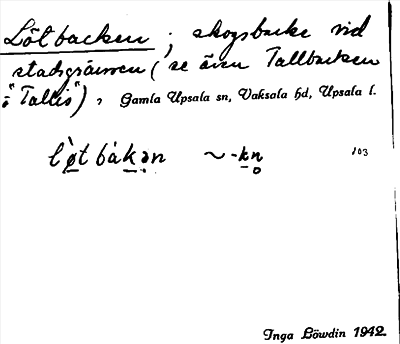 Lötbacken ; skogsbacke vid
stadsgränsen (se även Tallbacken
o "Tallis"), Gamla Upsala sn, Vaksala hd, Upsala l.
lø̀t bàkən ~ -kn̥ 103
Inga Löwdin 1942.